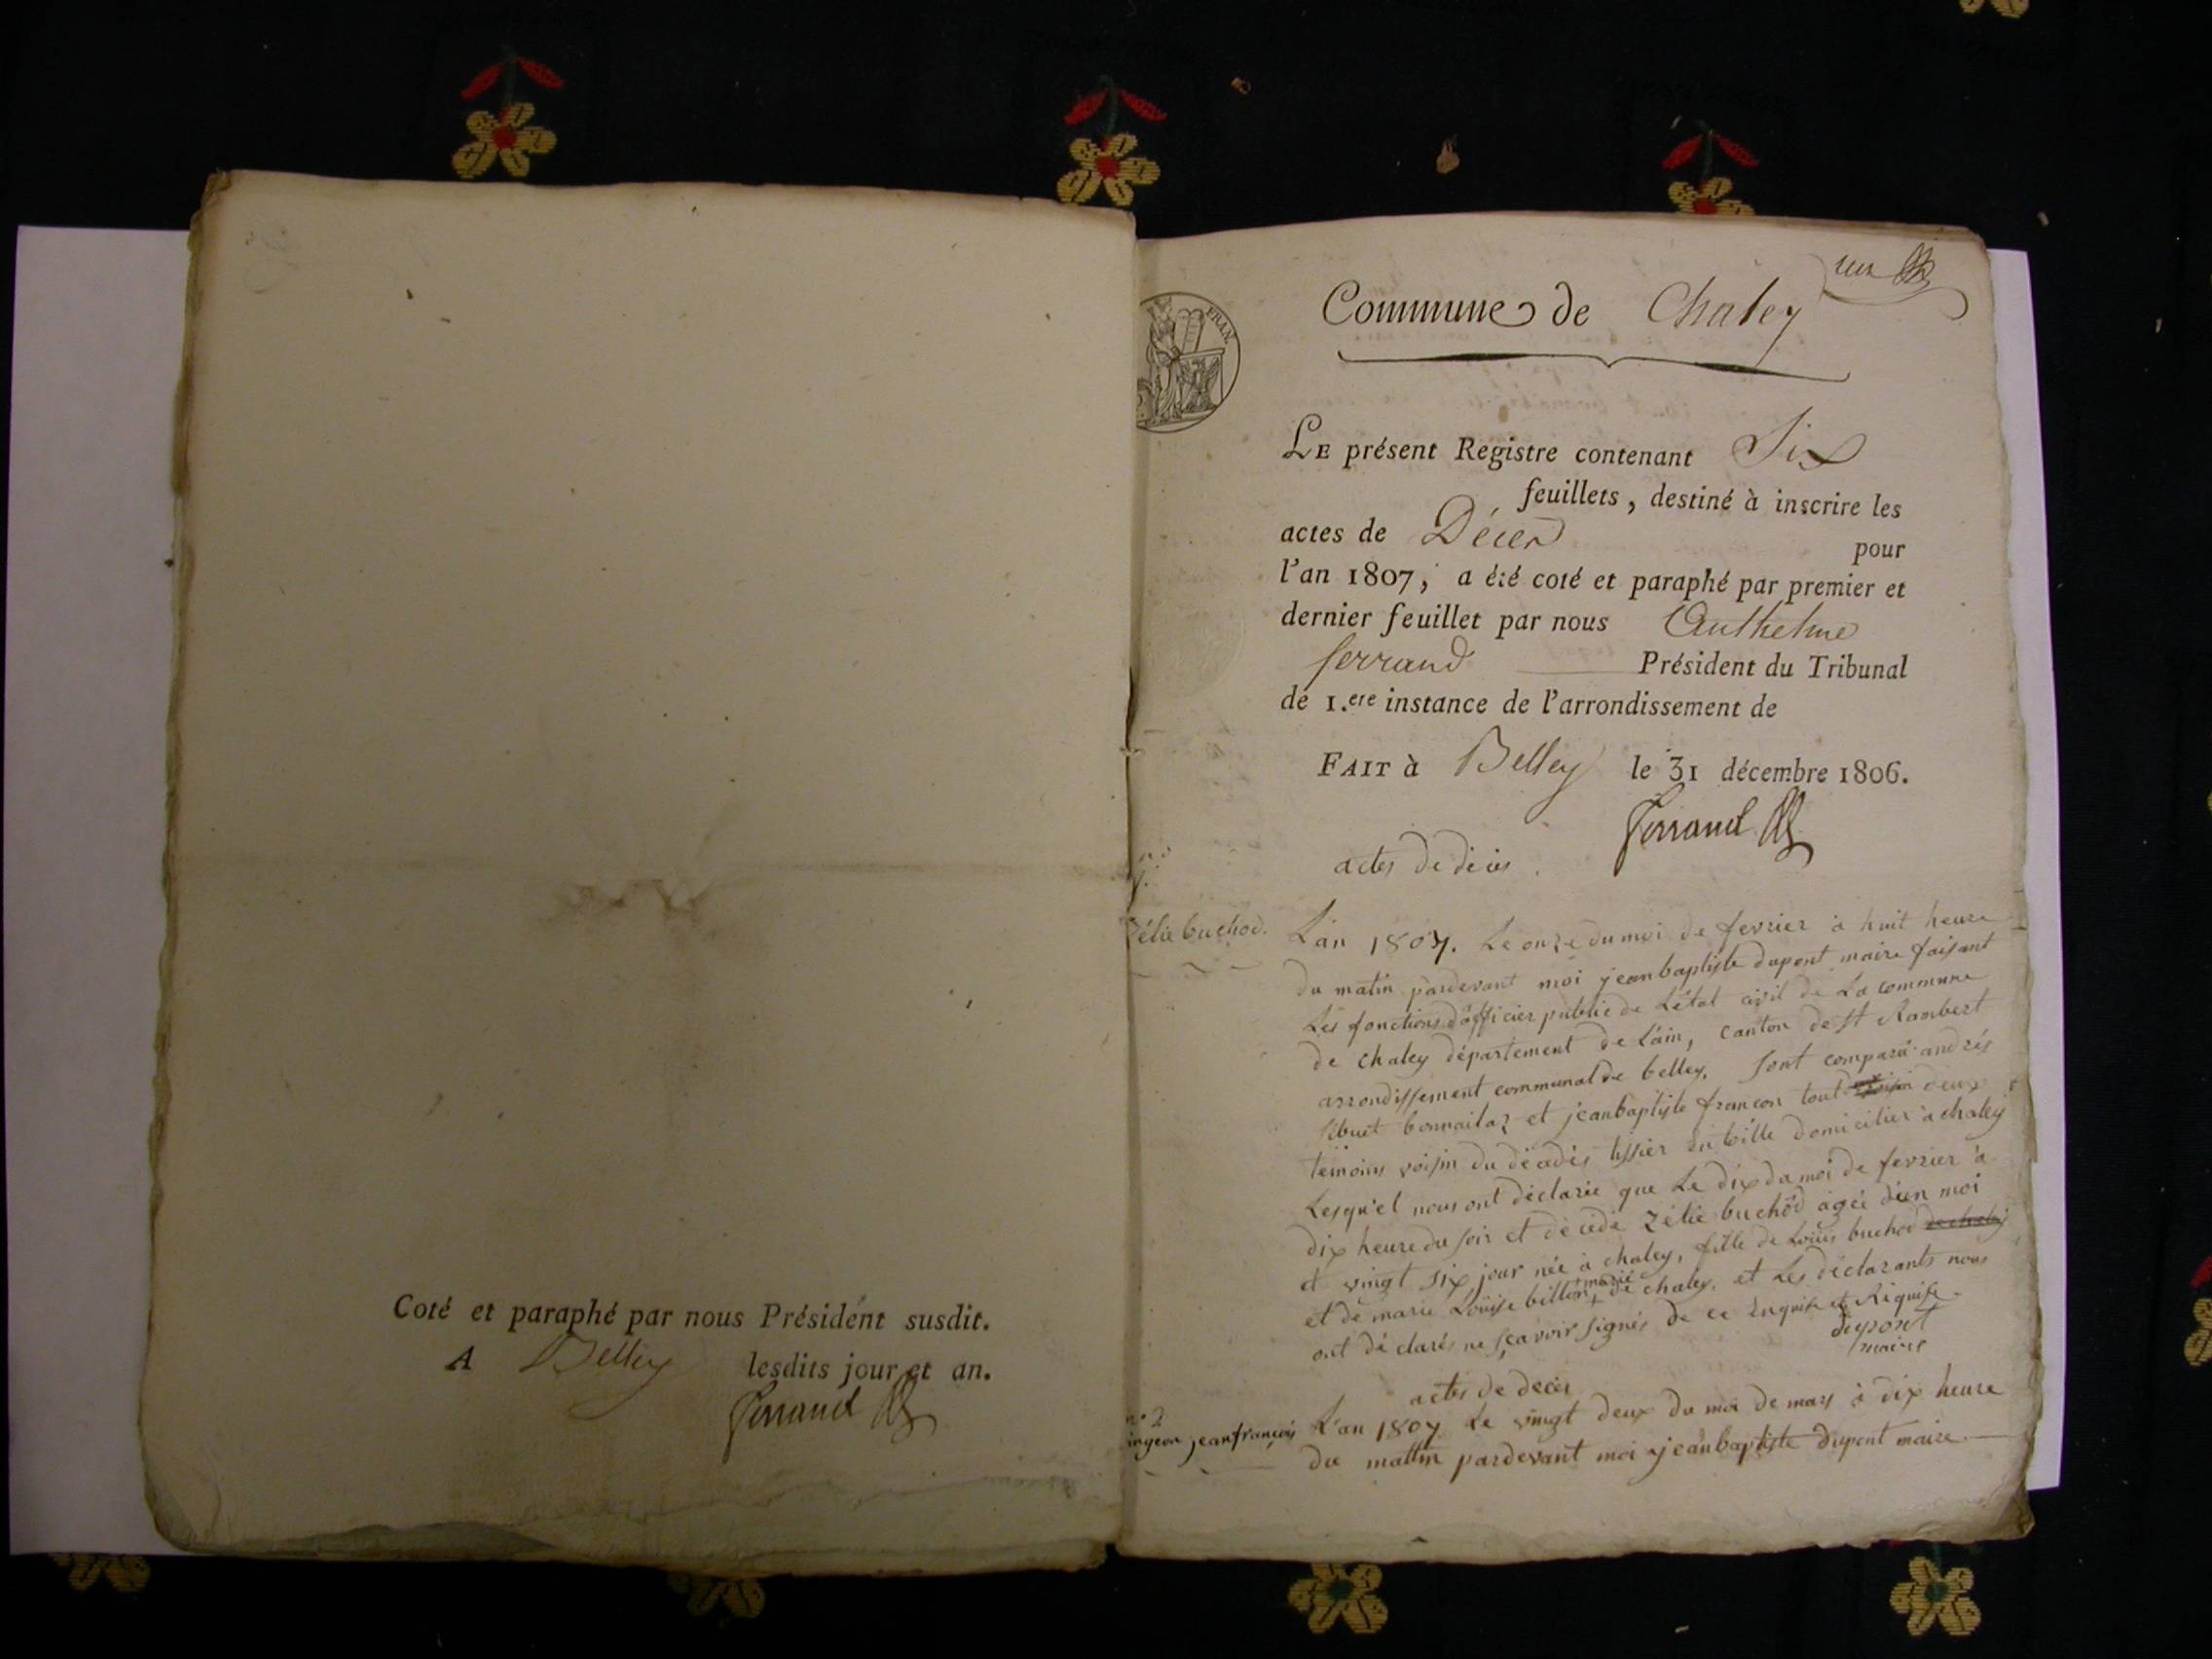 Coté et paraphé par nous Président susdit.
A Belley lesdits jour et an.
Ferrand
un
Commune de Chaley
FRAN.
LE présent Registre contenant Six
feuillets, destiné à inscrire les
actes de Décès pour
l'an 1807, a été coté et paraphé par premier et
dernier feuillet par nous Anthelme
ferrand Président du Tribunal
de 1.ere instance de l'arrondissement de
FAIT à Belley le 31 décembre 1806.
Ferrand
actes de décès.
Zélie buchod.
L'an 1807. Le onze du moi de fevrier à huit heure
du matin pardevant moi jeanbaptiste dupont maire faisant
Les fonctions d'officier public de L'état civil de La commune
de chaley département de L'ain, canton de St Rambert
arrondissement communal de belley. Sont comparu andrés
bonnailaz et jeanbaptiste françon tout deux
temoins voisin du décédés tissier domicilier à chaley
Lesqu'el nous ont déclarée que Le dix du moi de fevrier à
dix heure du soir et décédé Zélie buchod agée d'un moi
et vingt six jour née à chaley, fille de Loüis buchod de chaley
et de marie Loüise billon, marié de chaley. et Les déclarants nous
ont déclarés ne sçavoir signés de ce Enquise et Riquise.
dupont
maire
actes de decès
n° 2
ingeon jeanfrançois
L'an 1807 Le vingt deux du moi de mars à dix heure
du mattin pardevant moi jeanbaptiste dupont maire